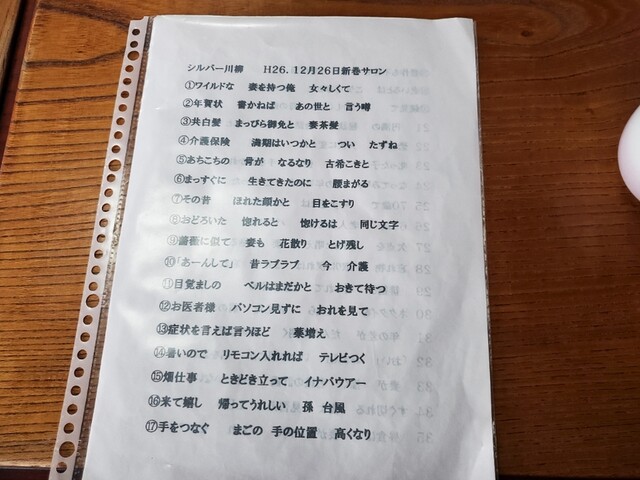 シルバー川柳　　H26.12月26日新巻サロン
①ワイルドな　妻を持つ俺　女々しくて
②年賀状　書かねば　あの世と　言う噂
③共白髪　まっぴら御免と　妻茶髪
④介護保険　満期はいつかと　つい　たずね
⑤あちこちの　骨が　なるなり　古希こきと
⑥まっすぐに　生きてきたのに　腰まがる
⑦その昔　ほれた顔かと　目をこすり
⑧おどろいた　惚れると　惚けるは　同じ文字
⑨薔薇に似て　妻も　花散り　とげ残し
⑩「あーんして」　昔ラブラブ　今　介護
⑪目覚ましの　ベルはまだかと　おきて待つ
⑫お医者様　パソコン見ずに　おれを見て
⑬症状を言えば言うほど　薬増え
⑭暑いので　リモコン入れれば　テレビつく
⑮畑仕事　ときどき立って　イナバウアー
⑯来て嬉し　帰ってうれしい　孫　台風
⑰手をつなぐ　まごの　手の位置　高くなり